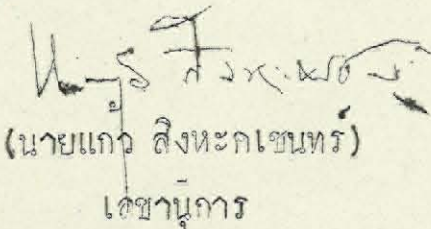 (นายแก้ว สิงหะคเชนทร์)
เลขานุการ